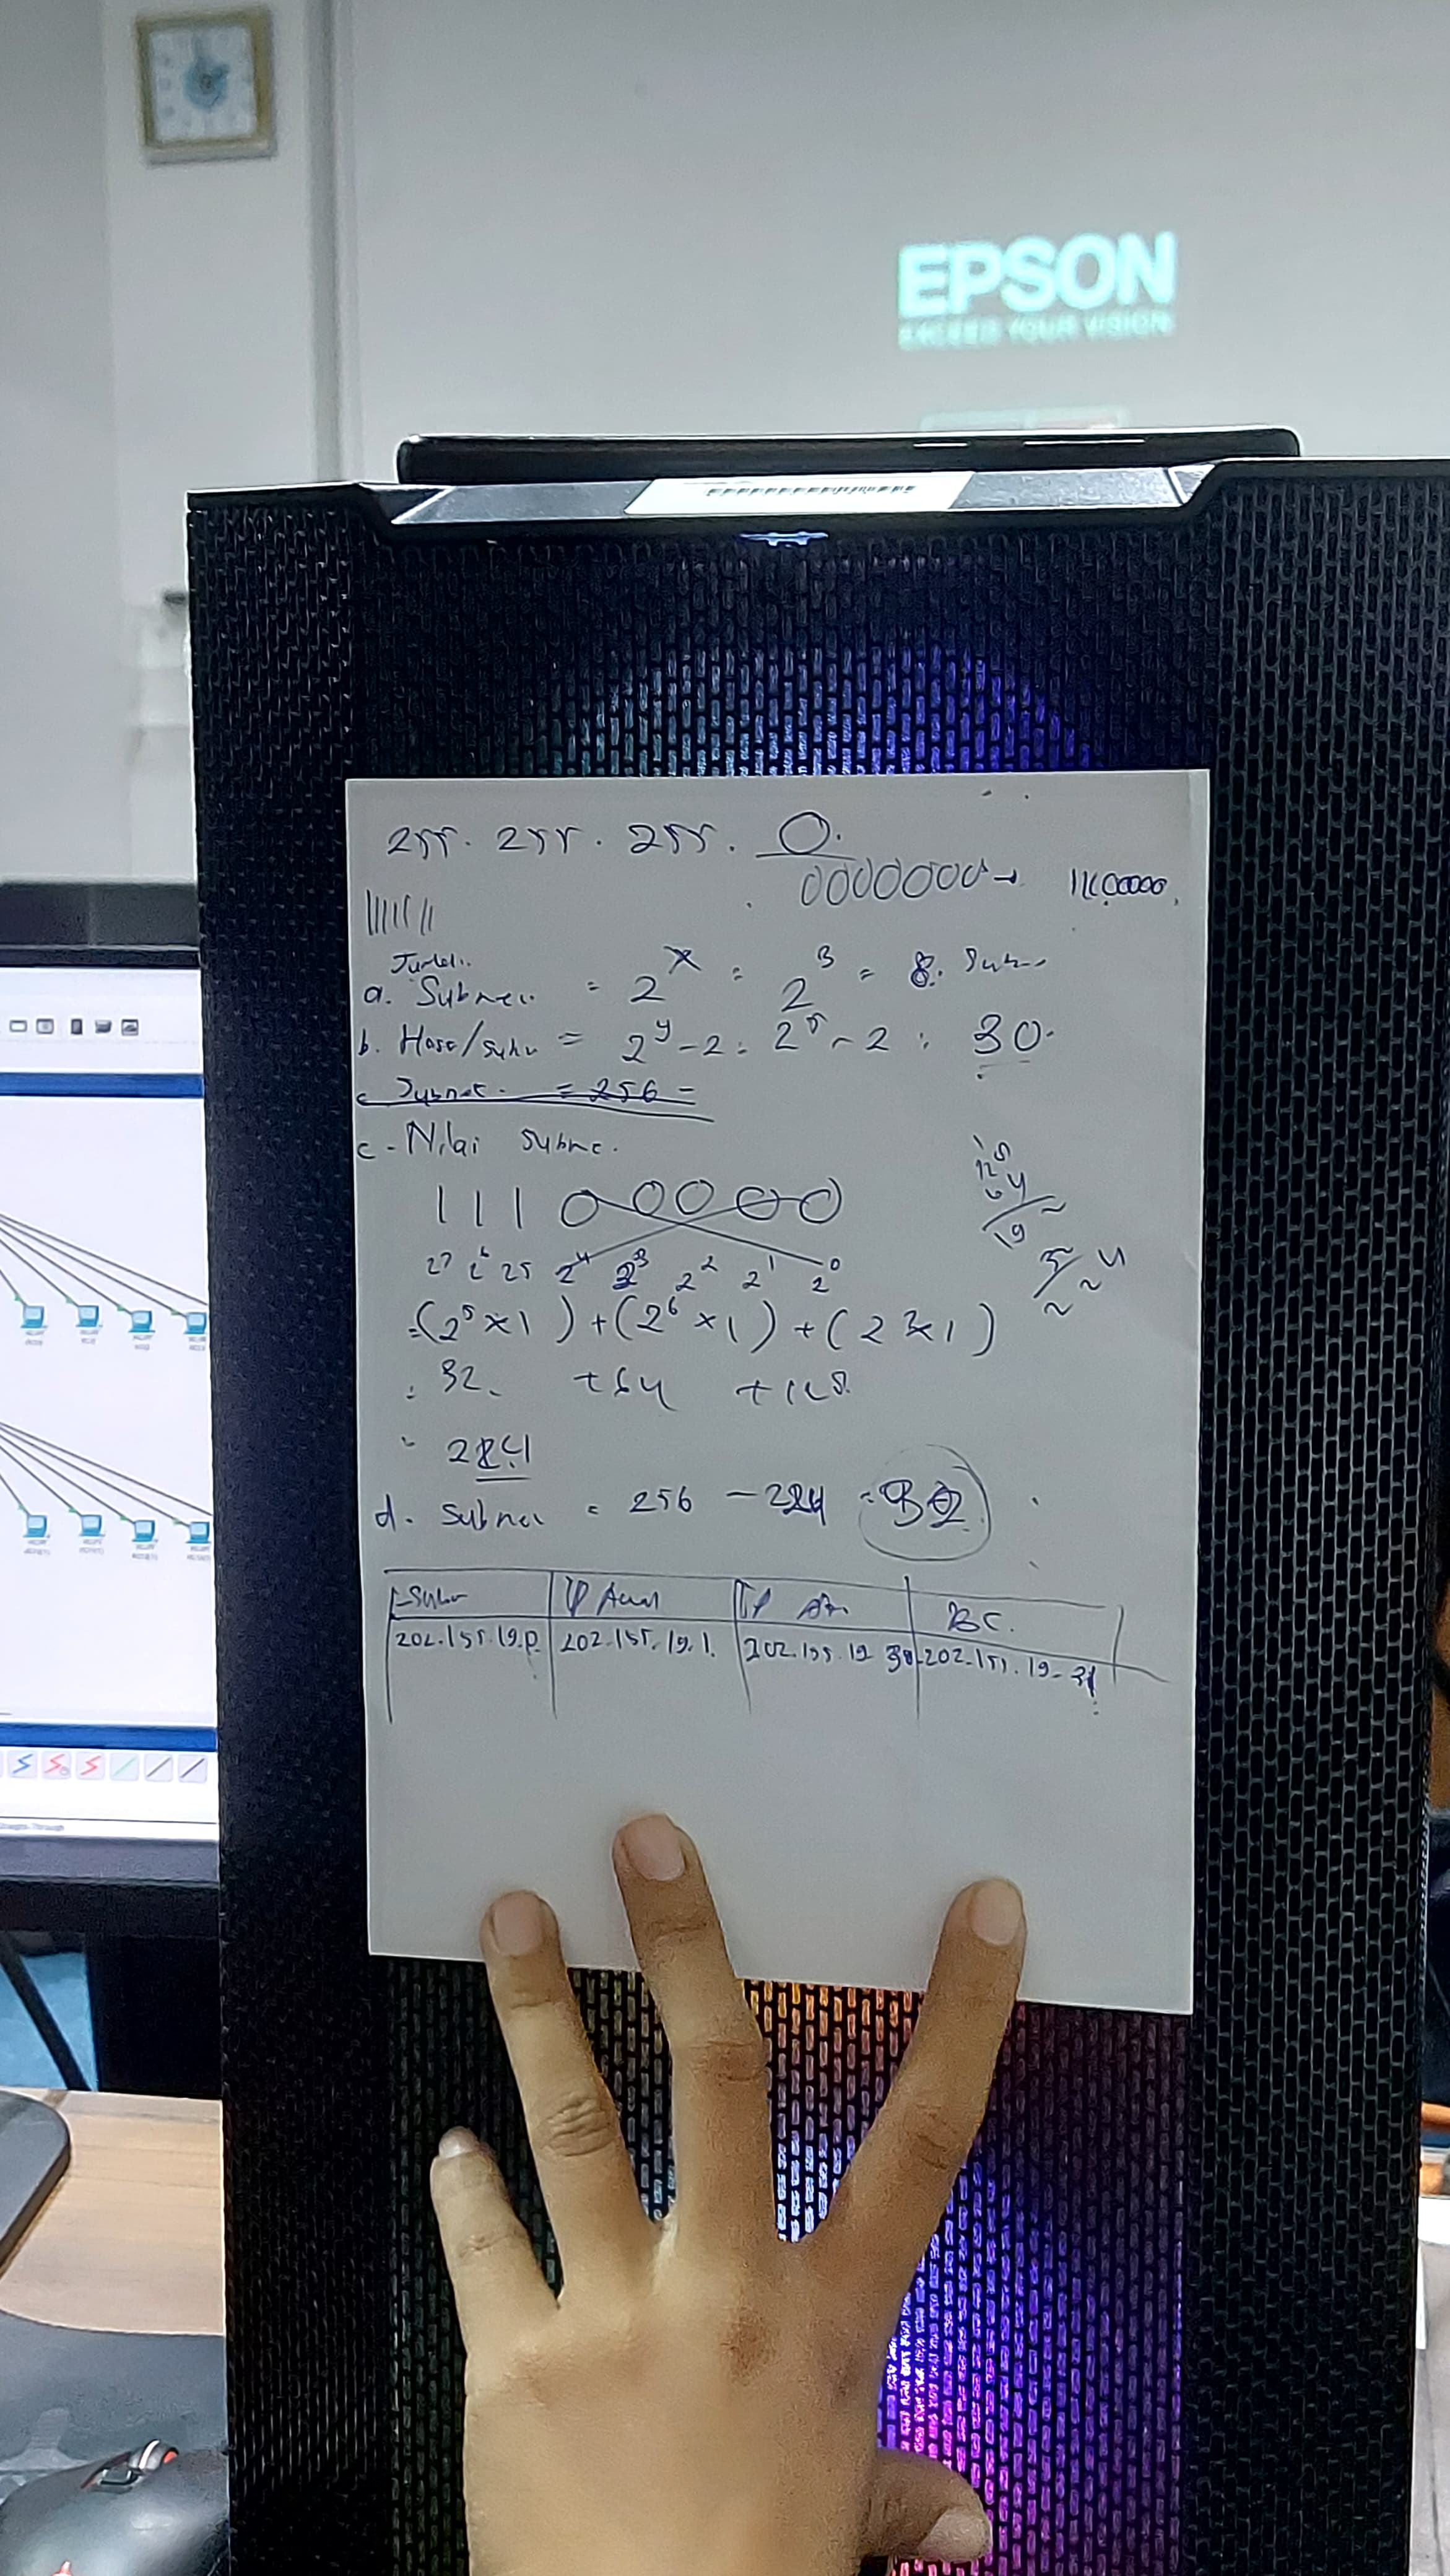 EPSON
EXCEED YOUR VISION
255. 255. 255. 0.
00000000 → 11100000.
11111111
Jumlah
a. Subnet = 2^x = 2^3 = 8.
b. Host/ = 2^y - 2 = 2^5 - 2 = 30.
c Subnet = 256 =
c. Nilai Subne.
1 1 1 0 0 0 0 0
2^7 2^6 2^5 2^4 2^3 2^2 2^1 2^0
=(2^5 x 1) + (2^6 x 1) + (2^7 x 1)
= 32 + 64 + 128
= 224
d. Subnet = 256 - 224 = 32
IP Awal BC.
202.155.19.0 202.155.19.1. 202.155.19 30 202.155.19-31